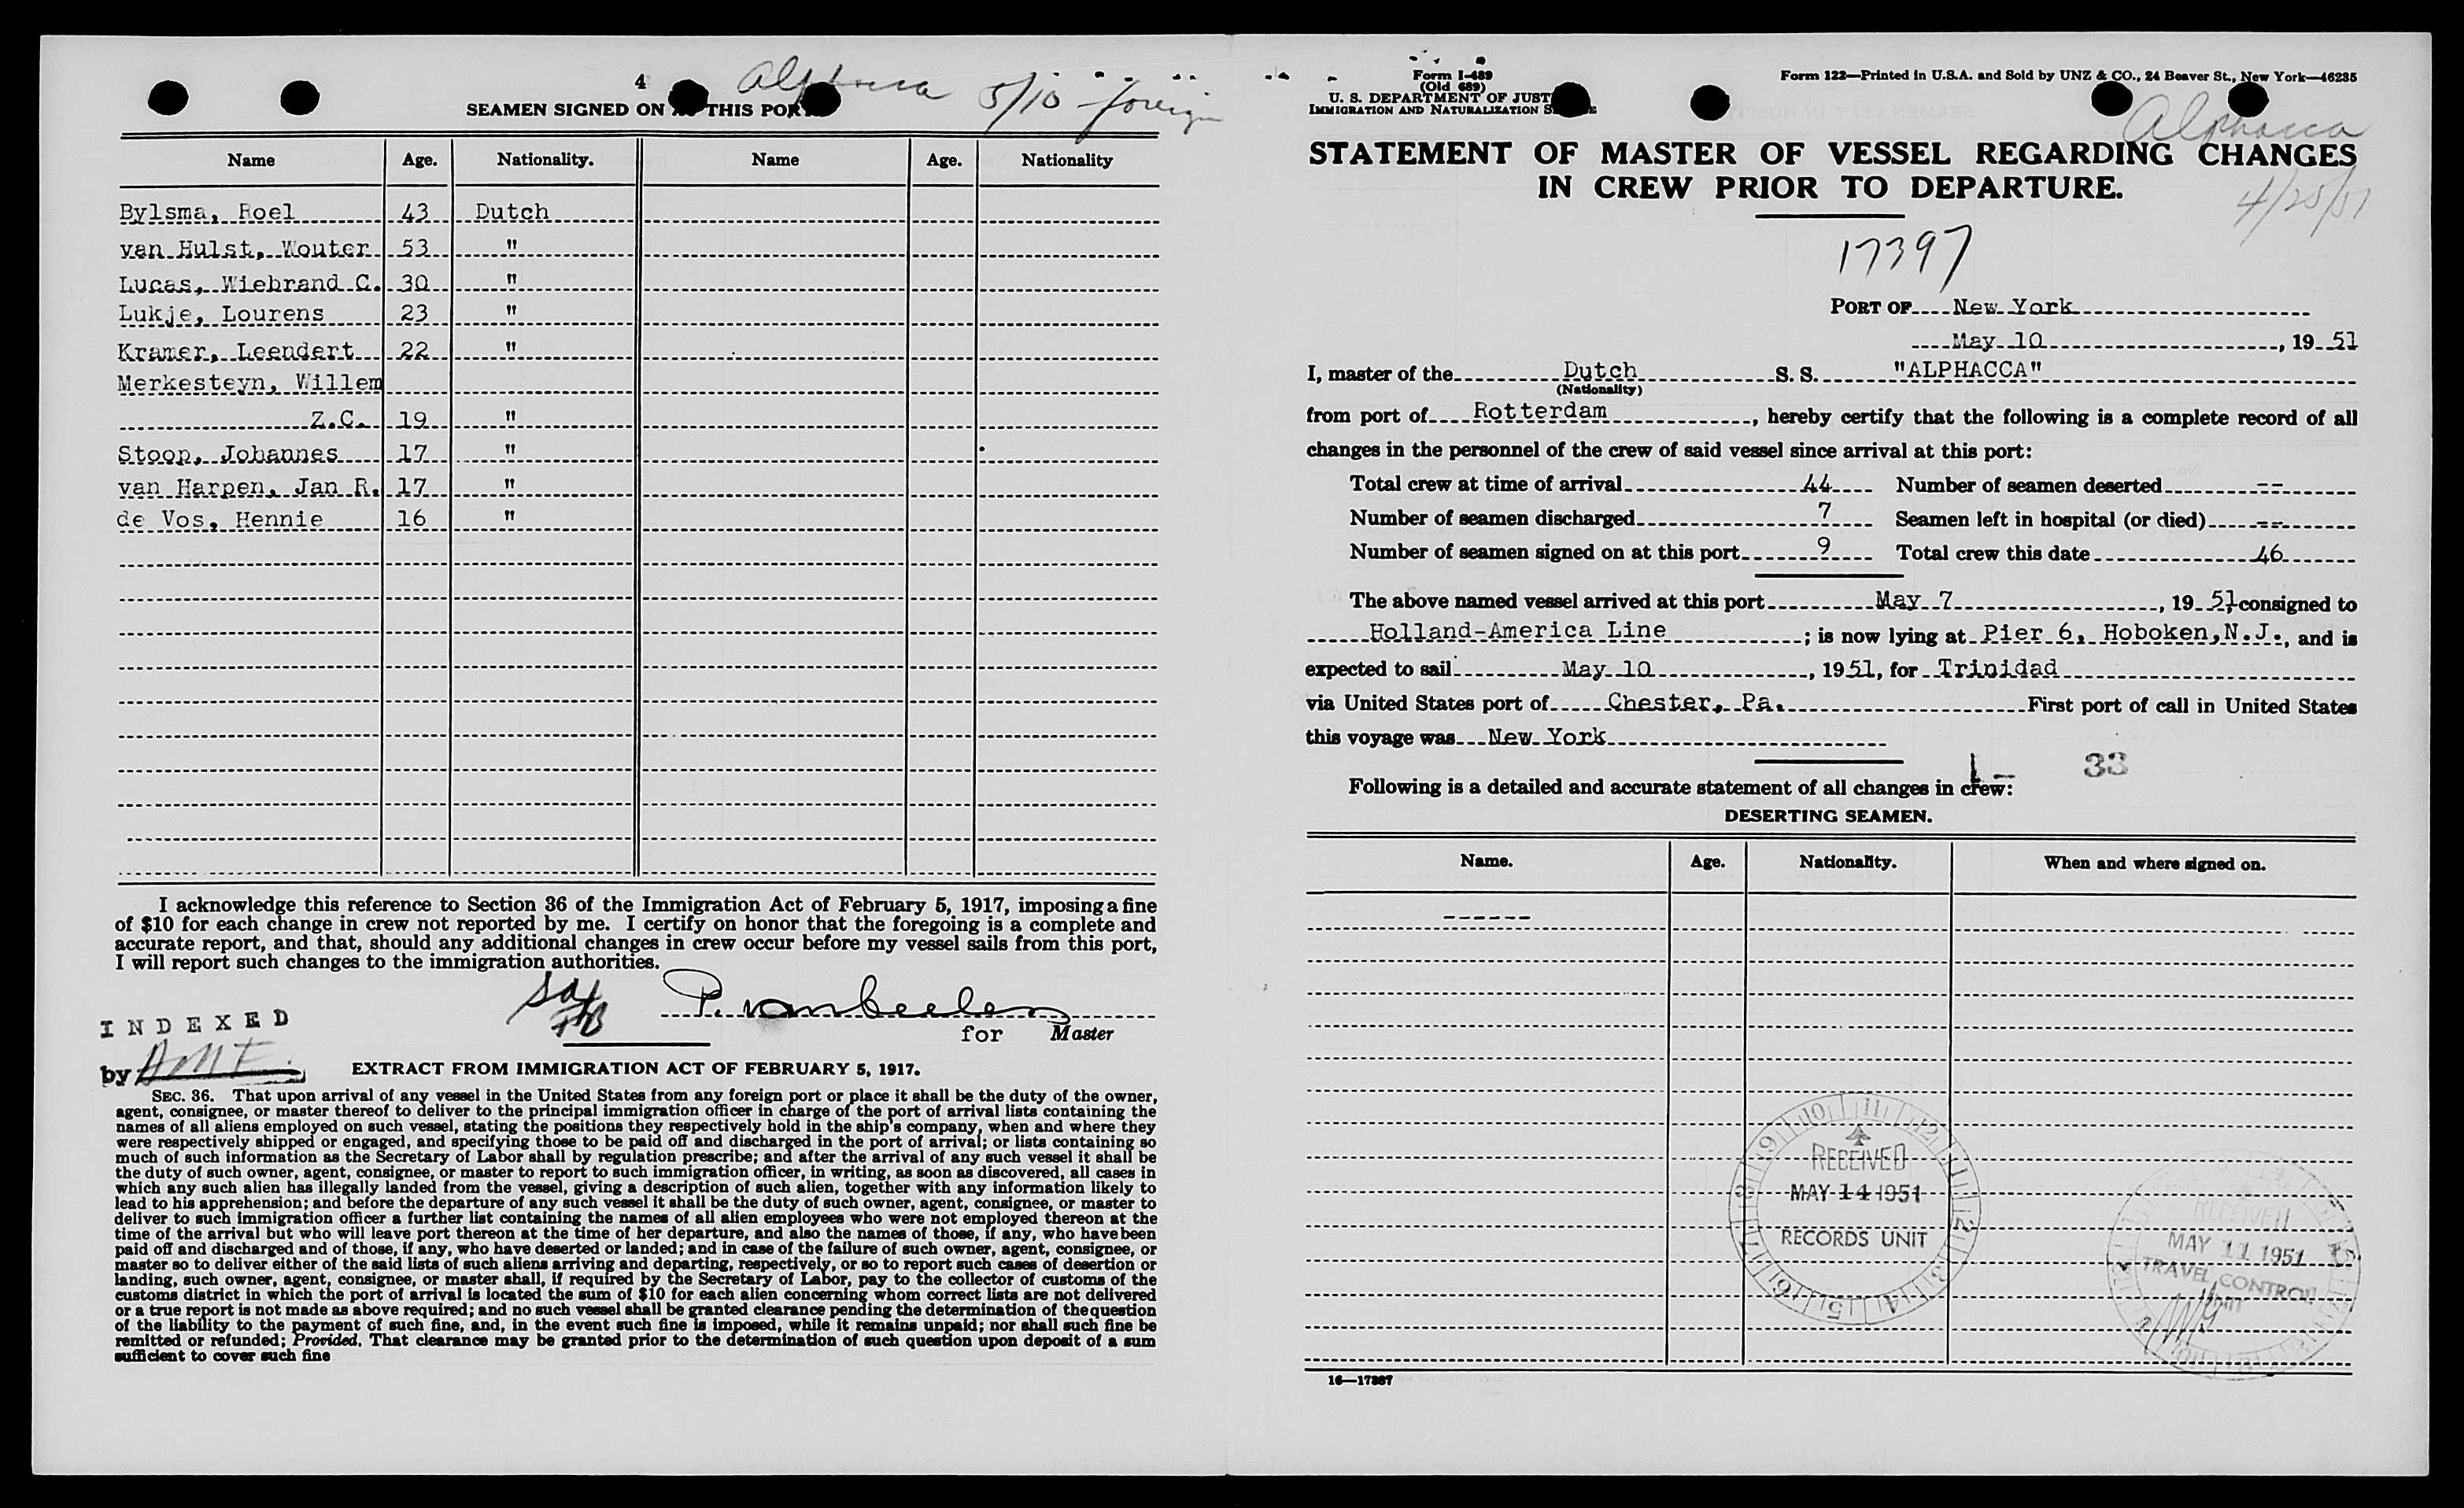 4
Alphacca 5/10 - foreign
SEAMEN SIGNED ON AT THIS PORT
Name Age. Nationality. Name Age. Nationality
Bylsma, Roel 43 Dutch
van Hulst, Wouter 53 "
Lucas, Wiebrand C. 30 "
Lukje, Lourens 23 "
Kramer, Leendert 22 "
Merkesteyn, Willem
Z.C. 19 "
Stoop, Johannes 17 "
van Harpen, Jan R. 17 "
de Vos, Hennie 16 "
I acknowledge this reference to Section 36 of the Immigration Act of February 5, 1917, imposing a fine
of $10 for each change in crew not reported by me. I certify on honor that the foregoing is a complete and
accurate report, and that, should any additional changes in crew occur before my vessel sails from this port,
I will report such changes to the immigration authorities.
P. van Beelen
for Master
INDEXED
by AME.
EXTRACT FROM IMMIGRATION ACT OF FEBRUARY 5, 1917.
SEC. 36. That upon arrival of any vessel in the United States from any foreign port or place it shall be the duty of the owner,
agent, consignee, or master thereof to deliver to the principal immigration officer in charge of the port of arrival lists containing the
names of all aliens employed on such vessel, stating the positions they respectively hold in the ship's company, when and where they
were respectively shipped or engaged, and specifying those to be paid off and discharged in the port of arrival; or lists containing so
much of such information as the Secretary of Labor shall by regulation prescribe; and after the arrival of any such vessel it shall be
the duty of such owner, agent, consignee, or master to report to such immigration officer, in writing, as soon as discovered, all cases in
which any such alien has illegally landed from the vessel, giving a description of such alien, together with any information likely to
lead to his apprehension; and before the departure of any such vessel it shall be the duty of such owner, agent, consignee, or master to
deliver to such immigration officer a further list containing the names of all alien employees who were not employed thereon at the
time of the arrival but who will leave port thereon at the time of her departure, and also the names of those, if any, who have been
paid off and discharged and of those, if any, who have deserted or landed; and in case of the failure of such owner, agent, consignee, or
master so to deliver either of the said lists of such aliens arriving and departing, respectively, or so to report such cases of desertion or
landing, such owner, agent, consignee, or master shall, if required by the Secretary of Labor, pay to the collector of customs of the
customs district in which the port of arrival is located the sum of $10 for each alien concerning whom correct lists are not delivered
or a true report is not made as above required; and no such vessel shall be granted clearance pending the determination of the question
of the liability to the payment of such fine, and, in the event such fine is imposed, while it remains unpaid; nor shall such fine be
remitted or refunded; Provided, That clearance may be granted prior to the determination of such question upon deposit of a sum
sufficient to cover such fine
Form I-489
(Old 689)
U. S. DEPARTMENT OF JUSTICE
IMMIGRATION AND NATURALIZATION SERVICE
Form 122—Printed in U.S.A. and Sold by UNZ & CO., 24 Beaver St., New York—46235
Alphacca
STATEMENT OF MASTER OF VESSEL REGARDING CHANGES
IN CREW PRIOR TO DEPARTURE.
4/25/51
17397
PORT OF New York
May 10, 19 51
I, master of the Dutch S. S. "ALPHACCA"
(Nationality)
from port of Rotterdam, hereby certify that the following is a complete record of all
changes in the personnel of the crew of said vessel since arrival at this port:
Total crew at time of arrival 44 Number of seamen deserted --
Number of seamen discharged 7 Seamen left in hospital (or died) --
Number of seamen signed on at this port 9 Total crew this date 46
The above named vessel arrived at this port May 7, 19 51 consigned to
Holland-America Line; is now lying at Pier 6, Hoboken, N.J., and is
expected to sail May 10, 1951, for Trinidad
via United States port of Chester, Pa. First port of call in United States
this voyage was New York
1- 33
Following is a detailed and accurate statement of all changes in crew:
DESERTING SEAMEN.
Name. Age. Nationality. When and where signed on.
------
RECEIVED
MAY 14 1951
RECORDS UNIT
RECEIVED
MAY 11 1951
TRAVEL CONTROL
16—17887